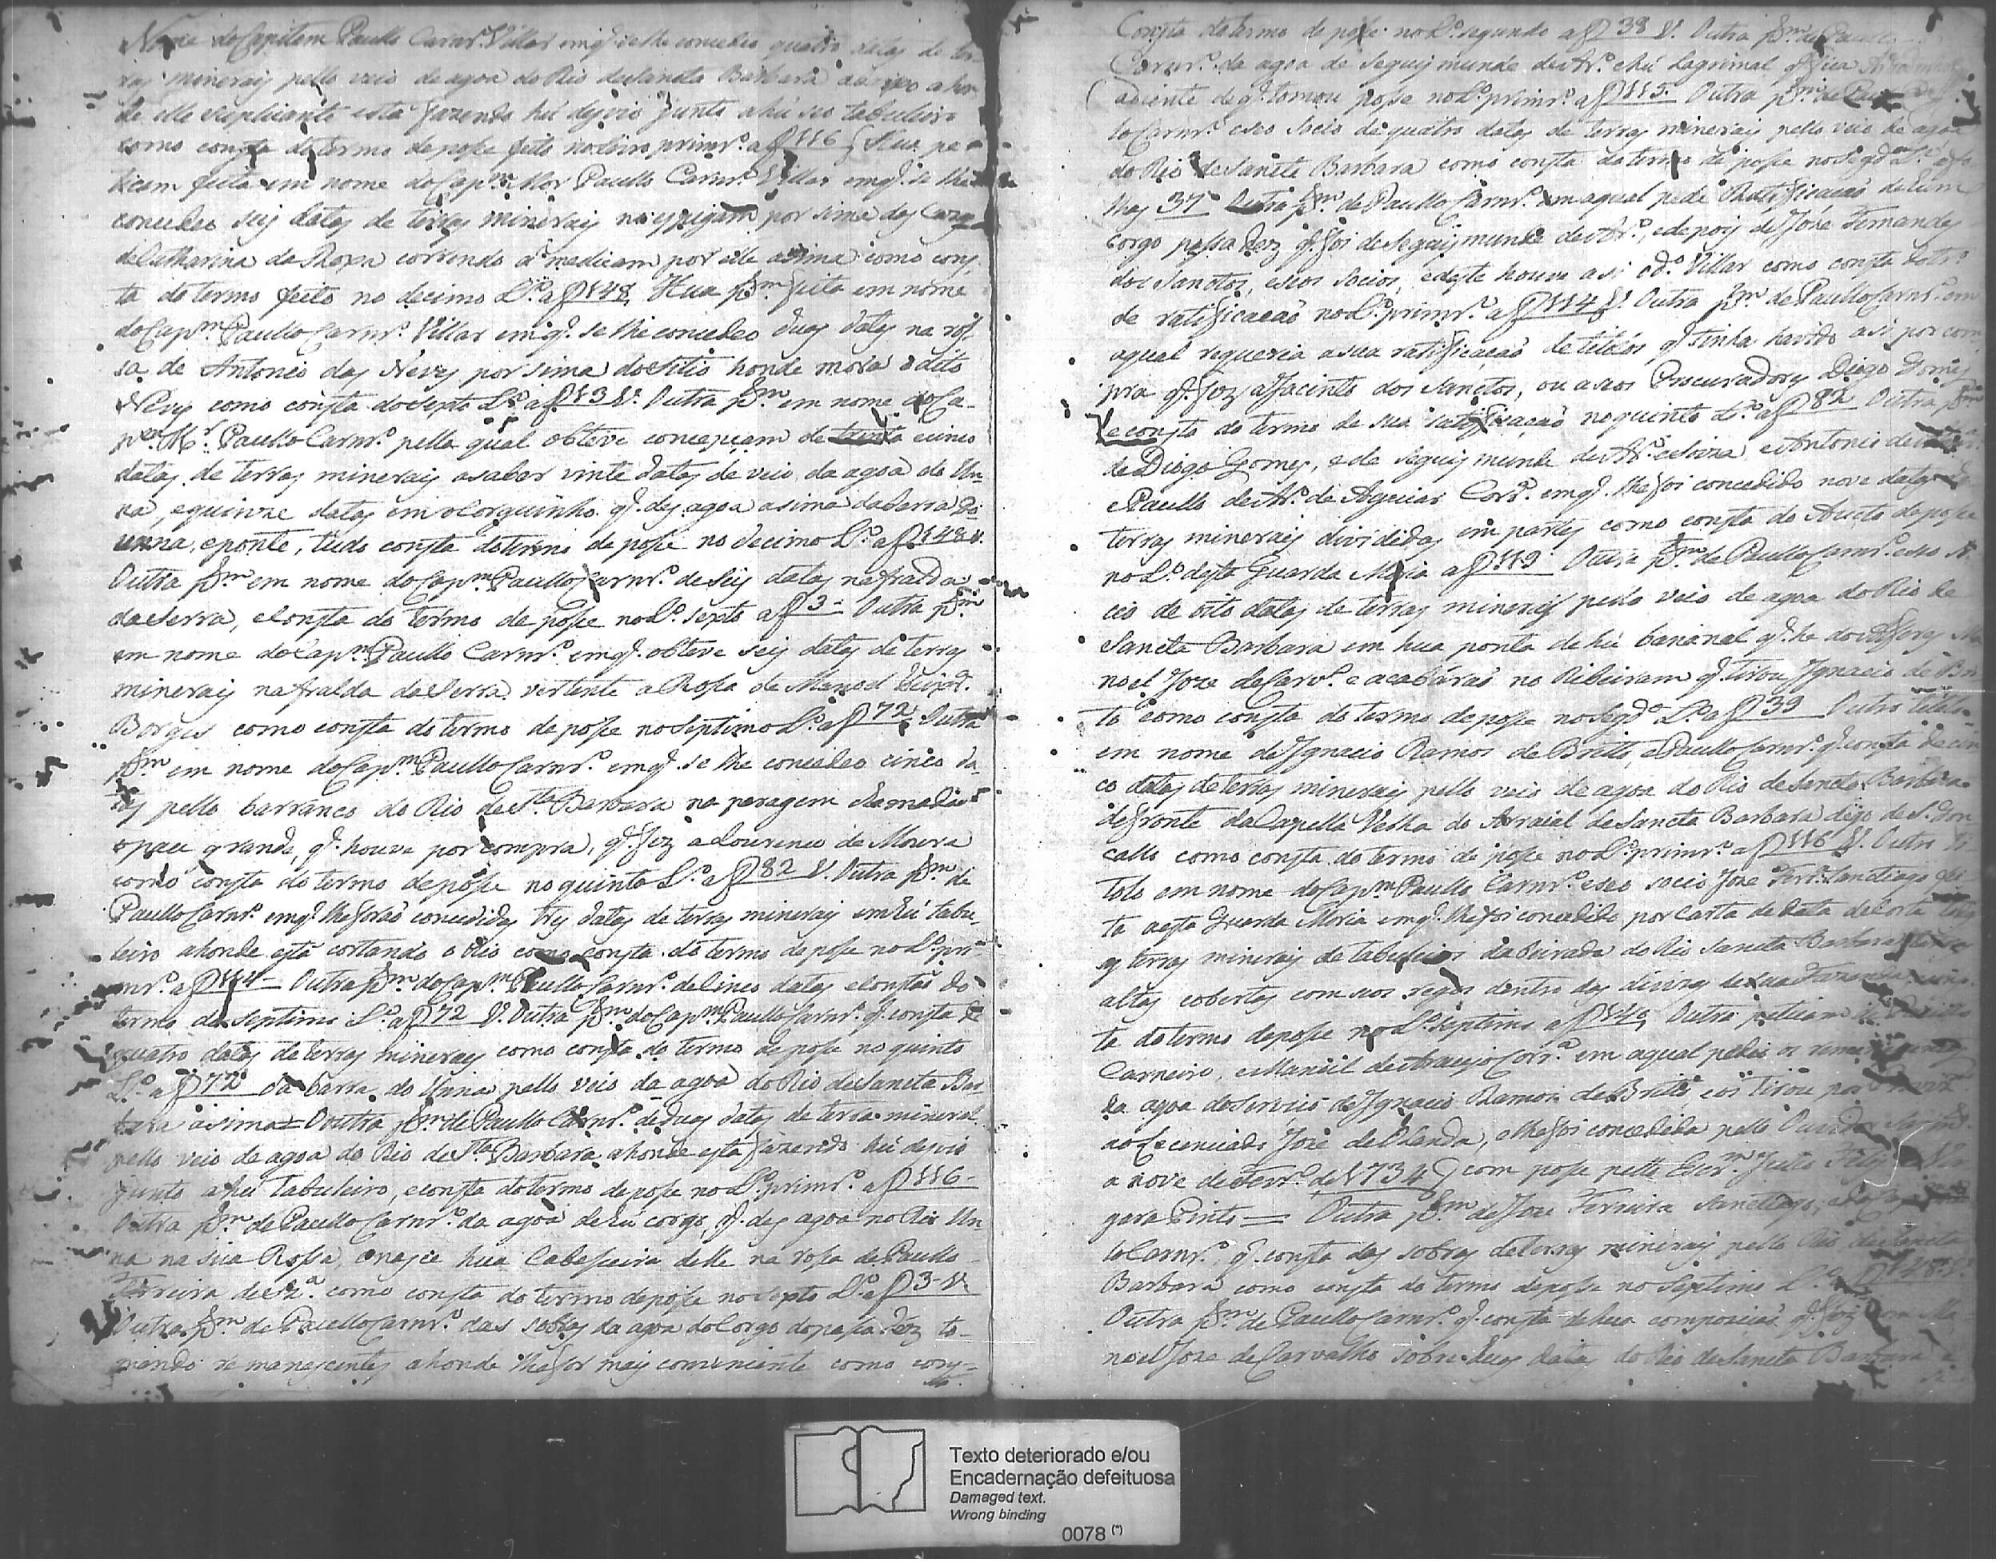 Nome do Capitam Paullo Carnr.º Villar em q̃ se lhe concedeo quatro datas de ter
ras mineraes pello veio de agoa do Rio de Sancta Barbara
de elle suplicante esta fazendo hũ desvio junto a hũ seo tabuleiro
como consta do termo de posse feito no livro primr.º a f 116 Hua pe
ticam feita em nome do Cap.m Mor Paullo Carnr.º Villar em q̃ se lhe
concedeo seis datas de terras mineraes por sima das
de Catharina da Rosa correndo a medicam por elle asima como cons
ta do termo feito no decimo L.º a f 148 Hua p.m feita em nome
do Cap.m Paullo Carnr.º Villar em q̃ se lhe concedeo duas datas na ros
sa de Antonio das Neves por sima do sitio honde mora o dito
Neves como consta do sexto L.º a f 13 V. Outra p.m em nome do Ca
p.m M.r Paullo Carnr.º pella qual obteve concepçam de trinta e cinco
datas de terras mineraes a saber vinte datas de veio da agoa do Un
na, e quinze datas em o Corguinho q̃ des agoa asima da barra do
unna, e ponte, tudo consta do termo de posse no decimo L.º a f 148 V.
Outra p.m em nome do Cap.m Paullo Carnr.º de seis datas na fralda
da serra, e consta do termo de posse no L.º sexto a f 3 Outra p.m
em nome do Cap.m Paullo Carnr.º em q̃ obteve seis datas de terras
mineraes na fralda da serra vertente a Rosa de Manoel
Borges como consta do termo de posse no septimo L.º a f 72 Outra
p.m em nome do Cap.m Paullo Carnr.º em q̃ se lhe concedeo cinco da
tas pello barranco do Rio de S.ta Barbara na paragem chamada
grande, q̃ houve por compra, q̃ fez a Lourenco de Moura
como consta do termo de posse no quinto L.º a f 82 V. Outra p.m de
Paullo Carnr.º em q̃ lhe foraõ concedidas tres datas de terras mineraes em hũ tabu
leiro ahonde está cortando o Rio como consta do termo de posse no L.º pri
mr.º a f 114 Outra p.m do Cap.m Paullo Carnr.º de Cinco datas e consta do
termo do septimo L.º a f 72 V. Outra p.m do Cap.m Paullo Carnr.º q̃ consta de
quatro datas de terras mineraes como consta do termo de posse no quinto
L.º a f 72 da barra do Unna pello veio da agoa do Rio de Sancta Bar
bara asima = Outra p.m de Paullo Carnr.º de duas datas de terra mineral
pello veio de agoa do Rio de S.ta Barbara ahonde esta fazendo hũ desvio
junto a hũ tabuleiro, e consta do termo de posse no L.º primr.º a f 116
Outra p.m de Paullo Carnr.º da agoa de hũ corgo, q̃ des agoa no Rio Un
na na sua Rossa, e nasce hua Cabesseira delle na rosa de Paullo
Ferreira de como consta do termo de posse no sexto L.º a f 3 V.
Outra p.m de Paullo Carnr.º das sobras da agoa do Corgo do passa dez to
mando remanescentes ahonde lhe for mais conveniente como cons
Consta do termo de posse no L.º segundo a f 38 V. Outra p.m de Paullo
Carnr.º da agoa de Seguismundo de Ar.º e hũ lagrimal q̃ fica
adiente de q̃ tomou posse no L.º primr.º a f 115 Outra p.m de
lo Carnr.º e seo Socio de quatro datas de terras mineraes pello veio de agoa
do Rio de Sancta Barbara como consta do termo de posse no Seg.do L.º a fo
lhas 37 Outra p.m de Paullo Carnr.º em a qual pede Ratificacaõ de hum
corgo passa dez q̃ foi de Seguismundo de Ar.º, e depois de Joze Fernandes
dos Sanctos, e seos Socios, e deste houve asi o d.º Villar como consta do tr.º
de ratificacaõ no L.º primr.º a f 114 V. Outra p.m de Paullo Carnr.º em
a qual requeria a sua ratificaçaõ de titulos q̃ tinha havido asi por com
pra q̃ fez a Jacinto dos Sanctos, ou a seos Procuradores Diogo Gomes
e consta do termo de sua ratificaçaõ no quinto L.º a f 82 Outra p.m
de Diogo Gomes, e de Seguismundo de Ar.º e Antonio de
e Paullo de Ar.º de Aguiar em q̃ lhe foi concedido nove datas de
terras mineraes divididas em partes como consta do Aucto de posse
no L.º desta Guarda Moria a f 119 Outra p.m de Paullo Carnr.º e seo So
cio de oito datas de terras mineraes pello veio de agoa do Rio de
Sancta Barbara em hua ponta de hũ bananal q̃ he do Ma
noel Joze de Carv.º e acabáraõ no Ribeiram q̃ tirou Ignacio de Bri
to como consta do termo de posse no Seg.do L.º a f 39 Outro titulo
em nome de Ignacio Ramos de Britto, e Paullo Carnr.º q̃ consta de cin
co datas de terras mineraes pello veio de agoa do Rio de Sancta Barbara
defronte da Capella Velha do Arraial de Sancta Barbara digo de S. Gon
callo como consta do termo de posse no L.º primr.º a f 116 V. Outro Ti
tolo em nome do Cap.m Paullo Carnr.º e seo socio Joze Ferr.ª Sanctiago
ta nesta Guarda Moria em q̃ lhe foi concedido por Carta de Data
as terras mineraes de tabuleiros da Beirada do Rio Sancta Barbara
altas cobertas com seos regos dentro das divizas de sua Fazenda
ta do termo de posse no L.º septimo a f 140 Outra peticam de Paullo
Carneiro, e Manuel de Araujo em a qual pedio os remanescentes
da agoa do servico de Ignacio Ramos de Britto
ao Lecenciado Joze de Olanda, e lhe foi concedida pello
a nove de Fevr.º de 1734 com posse pello Escr.m
gara Pinto = Outra p.m de Joze Ferreira Sanctiago, e
lo Carnr.º q̃ consta das sobras de terras mineraes pello Rio de Sancta
Barbara como consta do termo de posse no septimo L.º
Outra p.m de Paullo Carnr.º q̃ consta de hua composiçaõ q̃ fez
noel Joze de Carvalho sobre duas datas do Rio de Sancta Barbara
Texto deteriorado e/ou
Encadernação defeituosa
Damaged text.
Wrong binding
0078 (*)